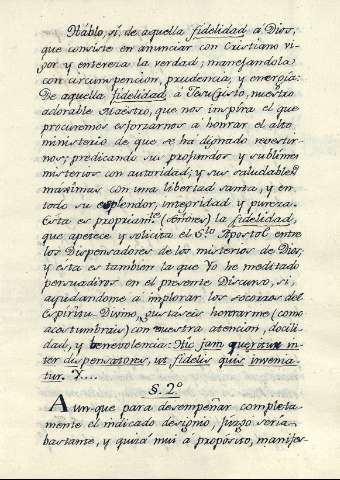 Hablo, sí, de aquella fidelidad á Dios,
que consiste en anunciar con Cristiano vi-
gor y entereza la verdad; manejandola
con circunspeccion, prudencia, y energia:
De aquella fidelidad, á Jesuchristo, nuestro
adorable Maestro, que nos inspira el que
procuremos esforzarnos á honrar el alto
ministerio de que se ha dignado revestir-
nos; predicando sus profundos y sublimes
misterios con autoridad; y sus saludables
maximas con una libertad santa, y en
todo su esplendor, integridad y pureza.
Esta es propriam.te (Señores) la fidelidad,
que apetece y solicita el S.to Apostol entre
los Dispensadores de los misterios de Dios;
y esta es tambien la que Yo he meditado
persuadiros en el presente Discurso, si,
ayudandome á implorar los socorros del
Espiritu Divino, gustáseis honrarme (como
acostumbrais) con vuestra atencion, docili-
dad, y benevolencia: Hic jam quæritur in-
ter dispensatores, ut fidelis quis invenia-
tur. Y....
§. 2.º
Aunque para desempeñar completa-
mente el indicado designio, juzgo seria
bastante, y quizá mui á propósito, manifes-